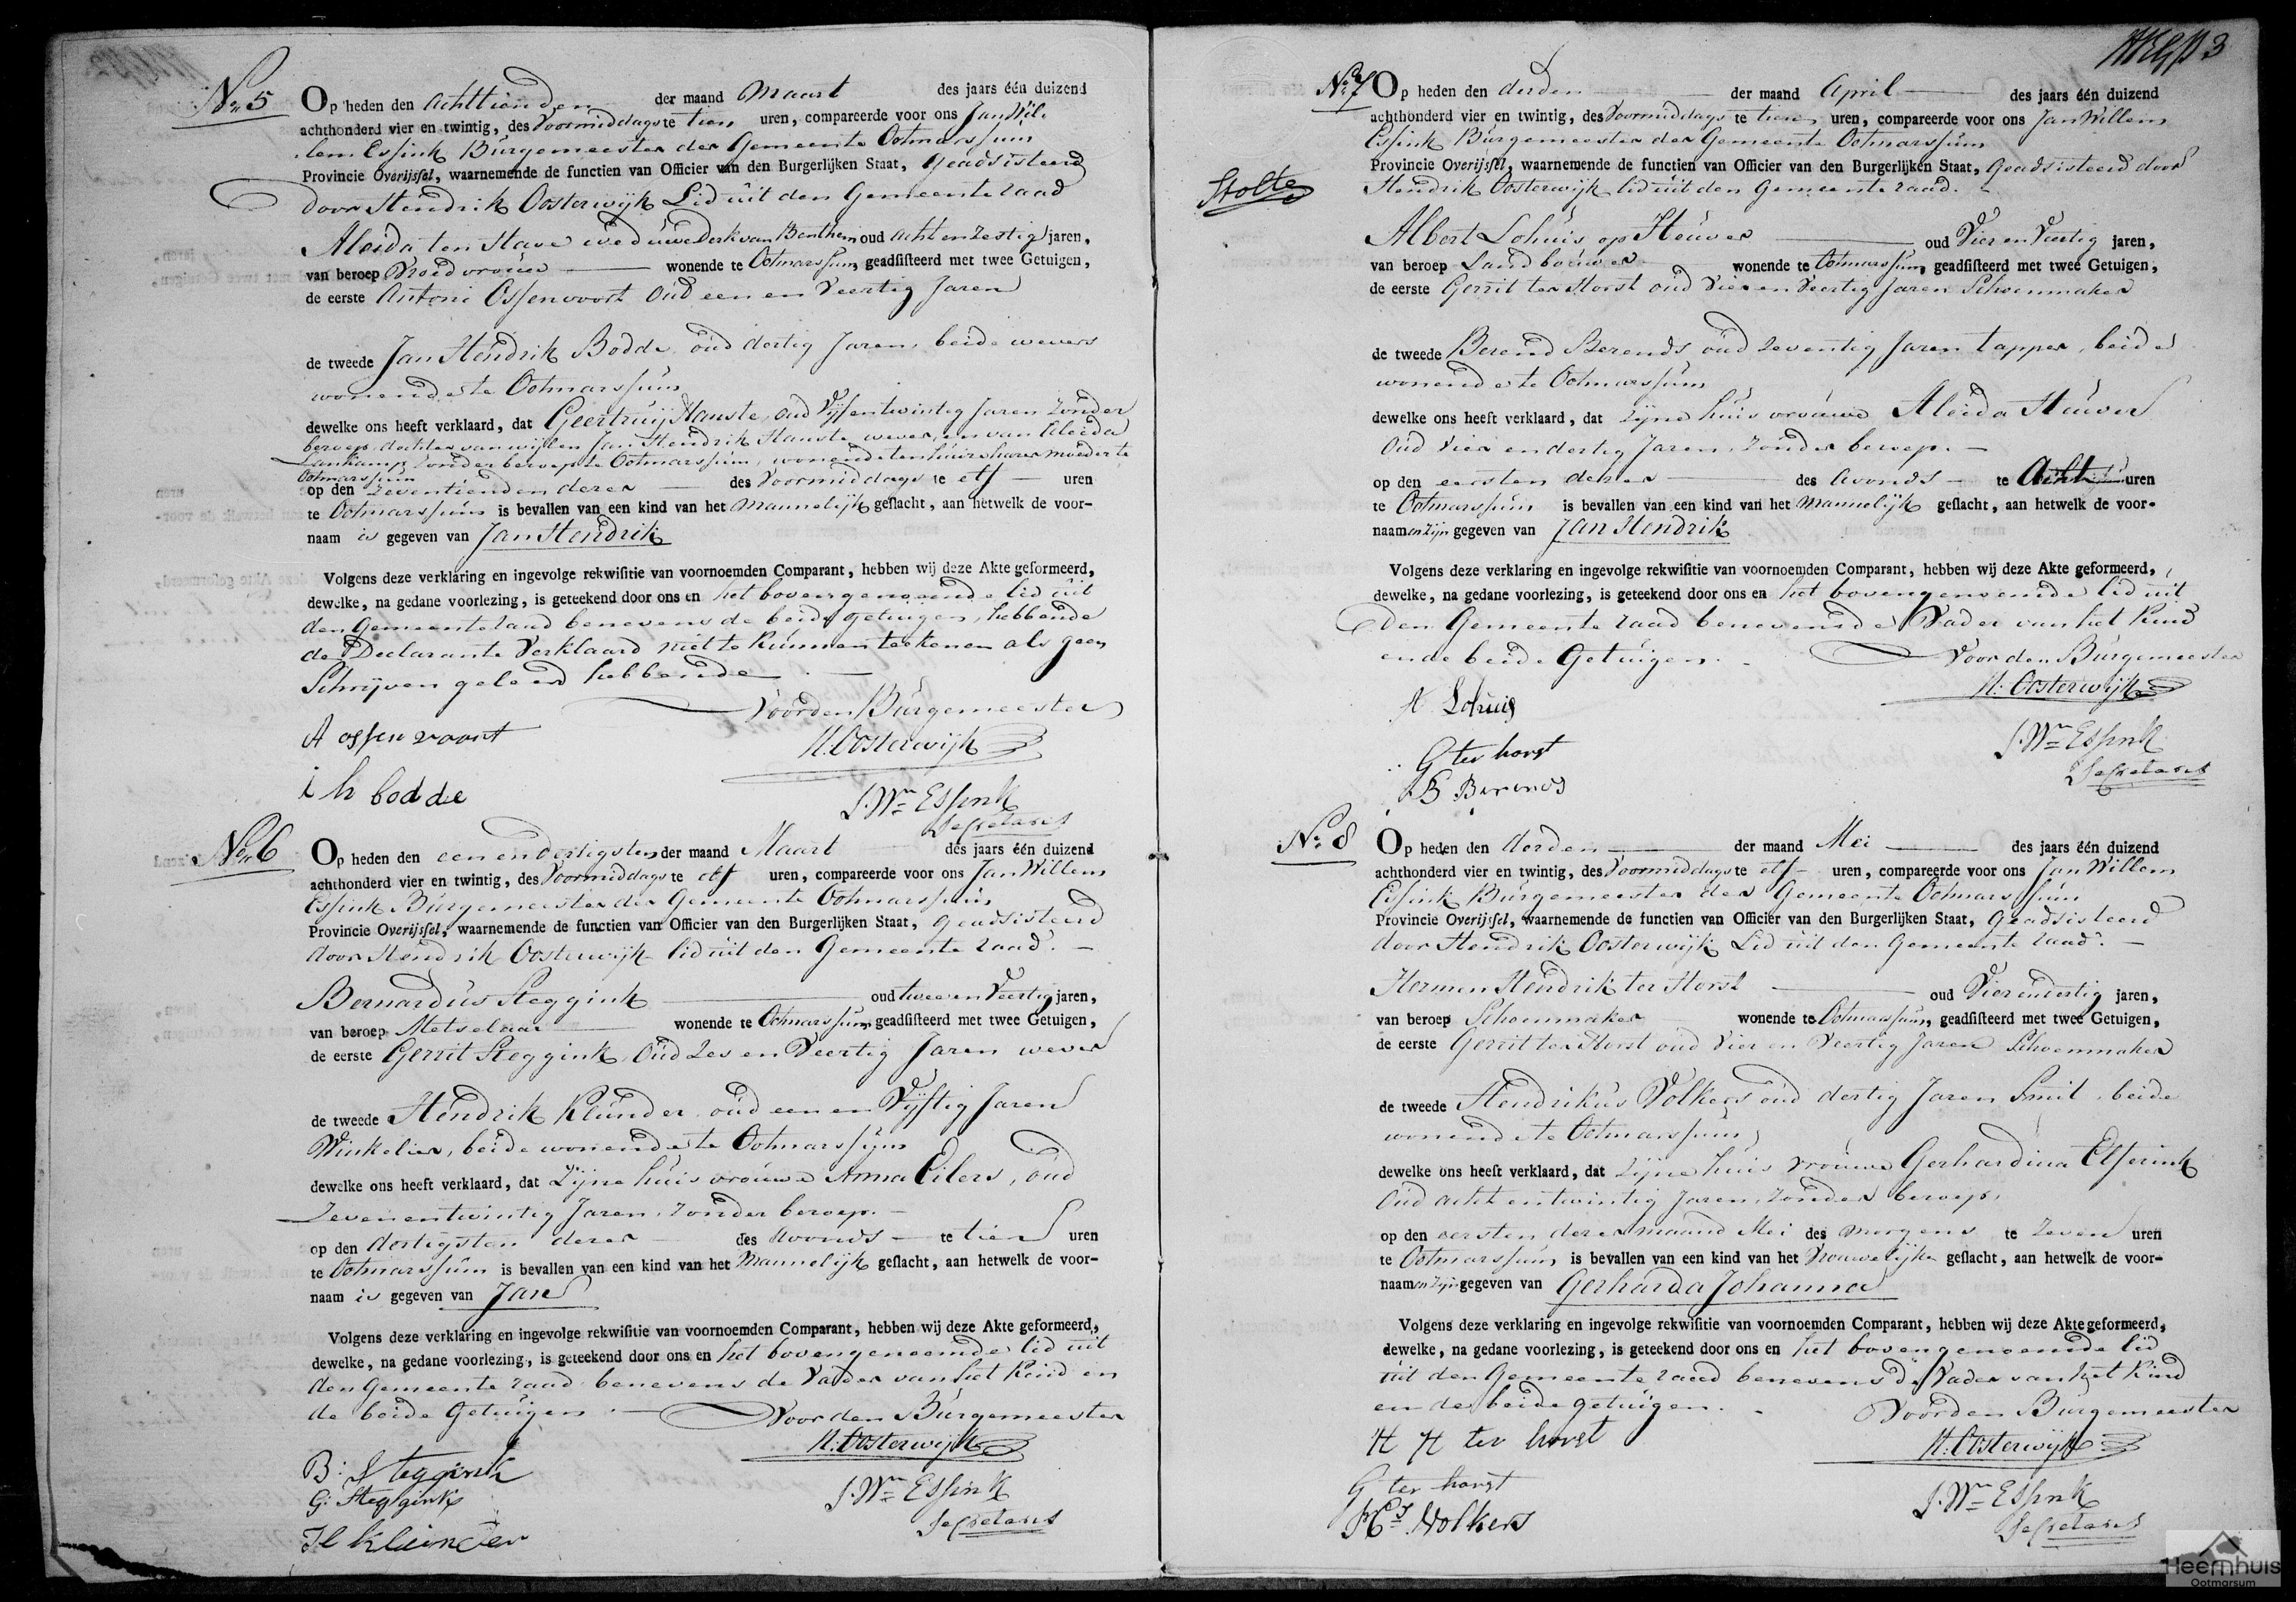 No 5
Op heden den achttienden der maand Maart des jaars één duizend
achthonderd vier en twintig, des Voormiddags te tien uren, compareerde voor ons Jan Wil-
lem Essink Burgemeester der Gemeente Ootmarssum
Provincie Overijssel, waarnemende de functien van Officier van den Burgerlijken Staat, geadsisteerd
door Hendrik Oosterwijk Lid uit den Gemeente raad
Aleida ten Have weduwe Derk van Benthem oud acht en zestig jaren,
van beroep Vroedvrouw wonende te Ootmarssum geadsisteerd met twee Getuigen,
de eerste Antoni Ossenvoort oud een en Veertig Jaren
de tweede Jan Hendrik Bodde, oud dertig Jaren, beide wevers
wonende te Ootmarssum
dewelke ons heeft verklaard, dat Geertruij Hauste, oud Vijfentwintig Jaren zonder
beroep, dochter van wijlen Jan Hendrik Hauste wever, en van Aleida
Lankamp zonder beroep te Ootmarssum, wonende ten huise harer moeder te
Ootmarssum
op den zeventienden dezer des Voormiddags te elf uren
te Ootmarssum is bevallen van een kind van het Mannelijk geslacht, aan hetwelk de voor-
naam is gegeven van Jan Hendrik
Volgens deze verklaring en ingevolge rekwisitie van voornoemden Comparant, hebben wij deze Akte geformeerd,
dewelke, na gedane voorlezing, is geteekend door ons en het bovengenoemde lid uit
den Gemeente raad benevens de beide getuigen, hebbende
de Declarante Verklaard niet te kunnen teekenen als geen
Schrijven geleerd hebbende
Voor den Burgemeester
A ossenvoort
H. Oosterwijk
i h bodde
J. Wm Essink
Secretaris
No 6
Op heden den een en dertigsten der maand Maart des jaars één duizend
achthonderd vier en twintig, des Voormiddags te elf uren, compareerde voor ons Jan Willem
Essink Burgemeester der Gemeente Ootmarssum
Provincie Overijssel, waarnemende de functien van Officier van den Burgerlijken Staat, geadsisteerd
door Hendrik Oosterwijk lid uit den Gemeente raad.
Bernardus Steggink oud twee en Veertig jaren,
van beroep Metselaar wonende te Ootmarssum geadsisteerd met twee Getuigen,
de eerste Gerrit Steggink, Oud Zes en Veertig Jaren wever
de tweede Hendrik Klunder oud een en Vijftig Jaren
Winkelier, beide wonende te Ootmarssum
dewelke ons heeft verklaard, dat Zijne huisvrouwe Anna Eilers, oud
Zevenentwintig Jaren, zonder beroep.
op den dertigsten dezer des Avonds te tien uren
te Ootmarssum is bevallen van een kind van het Mannelijk geslacht, aan hetwelk de voor-
naam is gegeven van Jan
Volgens deze verklaring en ingevolge rekwisitie van voornoemden Comparant, hebben wij deze Akte geformeerd,
dewelke, na gedane voorlezing, is geteekend door ons en het bovengenoemde lid uit
den Gemeente raad benevens de Vader van het Kind en
de beide Getuigen.
Voor den Burgemeester
H. Oosterwijk
B: Steggink
G: Steggink
J. Wm Essink
Secretaris
H klunder
3
No 7
Op heden den derden der maand April des jaars één duizend
achthonderd vier en twintig, des Voormiddags te tien uren, compareerde voor ons Jan Willem
Essink Burgemeester der Gemeente Ootmarssum
Provincie Overijssel, waarnemende de functien van Officier van den Burgerlijken Staat, geadsisteerd door
Hendrik Oosterwijk lid uit den Gemeente raad.
Stolte
Albert Lohuis op Heuver oud Vier en Veertig jaren,
van beroep Landbouwer wonende te Ootmarssum geadsisteerd met twee Getuigen,
de eerste Gerrit ter Horst oud Vier en Veertig Jaren Schoenmaker
de tweede Berend Berends oud Zeventig Jaren tapper, beide
wonende te Ootmarssum
dewelke ons heeft verklaard, dat Zijne huisvrouwe Aleida Heuver
Oud Vier en dertig Jaren, zonder beroep.
op den eersten dezer des Avonds te Acht uren
te Ootmarssum is bevallen van een kind van het Mannelijk geslacht, aan hetwelk de voor-
naamen zijn gegeven van Jan Hendrik
Volgens deze verklaring en ingevolge rekwisitie van voornoemden Comparant, hebben wij deze Akte geformeerd,
dewelke, na gedane voorlezing, is geteekend door ons en het bovengenoemde lid uit
den Gemeente raad benevens de Vader van het Kind
en de beide Getuigen.
Voor den Burgemeester
H. Oosterwijk
A Lohuis
G ter horst
B Berends
J. Wm Essink
Secretaris
No 8
Op heden den derden der maand Mei des jaars één duizend
achthonderd vier en twintig, des Voormiddags te elf uren, compareerde voor ons Jan Willem
Essink Burgemeester der Gemeente Ootmarssum
Provincie Overijssel, waarnemende de functien van Officier van den Burgerlijken Staat, geadsisteerd
door Hendrik Oosterwijk Lid uit den Gemeente raad.
Hermen Hendrik ter Horst oud Vier en dertig jaren,
van beroep Schoenmaker wonende te Ootmarssum, geadsisteerd met twee Getuigen,
de eerste Gerrit ter Horst oud Vier en Veertig Jaren Schoenmaker
de tweede Hendrikus Volkers oud dertig Jaren Smit, beide
wonende te Ootmarssum
dewelke ons heeft verklaard, dat Zijne huisvrouwe Gerhardina Elferink
Oud acht en twintig Jaren, zonder beroep,
op den eersten dezer maand Mei des morgens te zeven uren
te Ootmarssum is bevallen van een kind van het Vrouwelijke geslacht, aan hetwelk de voor-
naamen zijn gegeven van Gerharda Johanna
Volgens deze verklaring en ingevolge rekwisitie van voornoemden Comparant, hebben wij deze Akte geformeerd,
dewelke, na gedane voorlezing, is geteekend door ons en het bovengenoemde lid
uit den Gemeente raad benevens de Vader van het Kind
en de beide getuigen.
Voor den Burgemeester
H. Oosterwijk
H H ter horst
G ter horst
Hs Volkers
J. Wm Essink
Secretaris
Heemhuis
Ootmarsum